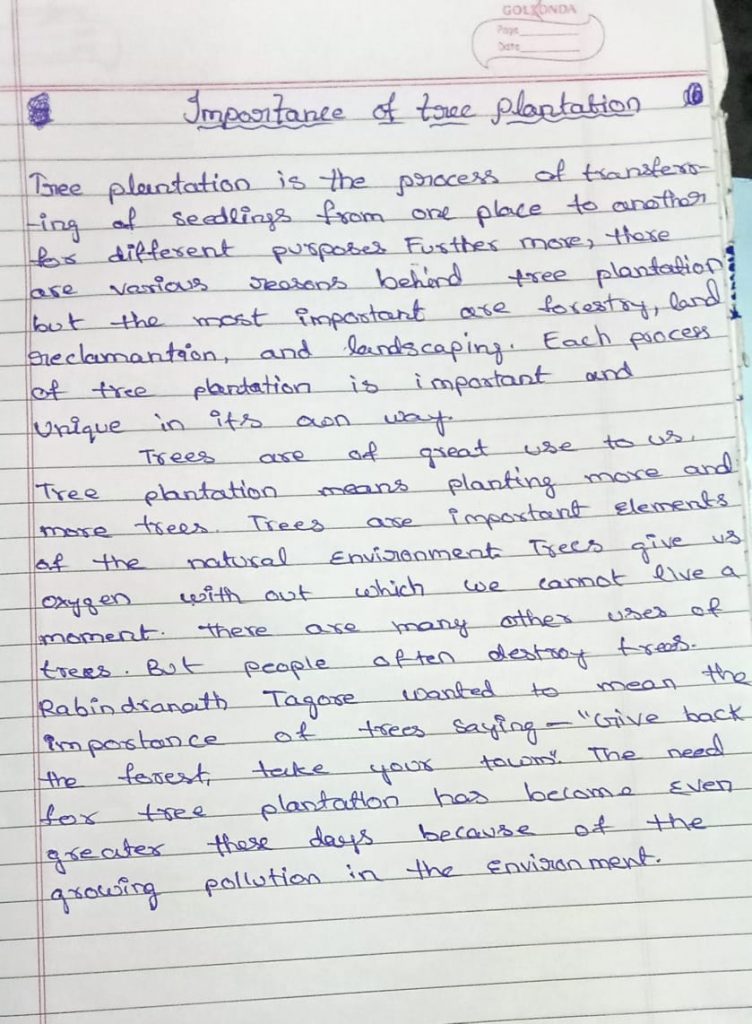 GOLKONDA
Page
Date
Importance of tree plantation
16
Tree plantation is the process of transferr-
-ing of seedlings from one place to another
for different purposes Further more, there
are various reasons behind tree plantation
but the most important are forestry, land
reclamantion, and landscaping. Each process
of tree plantation is important and
Unique in it's own way.
Trees are of great use to us.
Tree plantation means planting more and
more trees. Trees are important elements
of the natural Environment Trees give us
oxygen with out which we cannot live a
moment. there are many other uses of
trees. But people often destroy trees.
Rabindranath Tagore wanted to mean the
importance of trees saying - "Give back
the forest, take your town". The need
for tree plantation has become Even
greater these days because of the
growing pollution in the Environment.